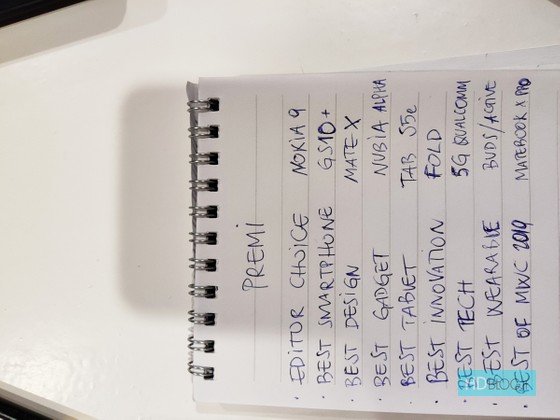 PREMI
· EDITOR CHOICE NOKIA 9
· BEST SMARTPHONE GS10+
· BEST DESIGN MATE X
· BEST GADGET NUBIA ALPHA
· BEST TABLET TAB S5e
· BEST INNOVATION FOLD
· BEST TECH 5G QUALCOMM
· BEST WEARABLE BUDS/ACTIVE
· BEST OF MWC 2019 MATEBOOK X PRO
ADBLOG